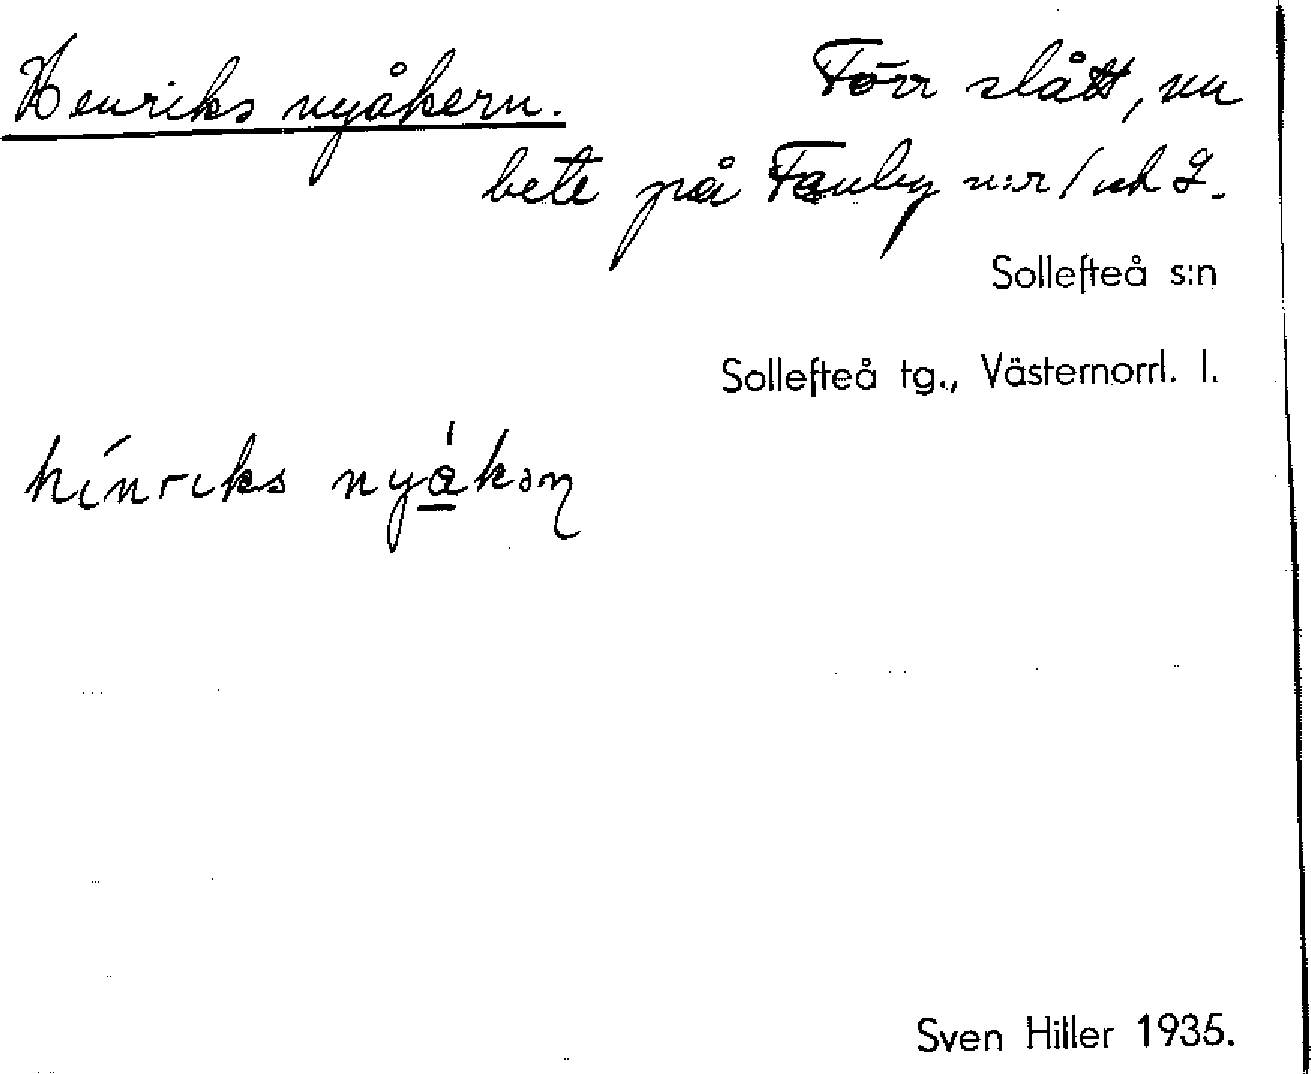 Henriks nyåkern. Förr slått, nu
bete på Fanby n:r 1 och 2.
Sollefteå s:n
Sollefteå tg., Västernorrl. l.
hinriks nyåkəɳ
Sven Hiller 1935.